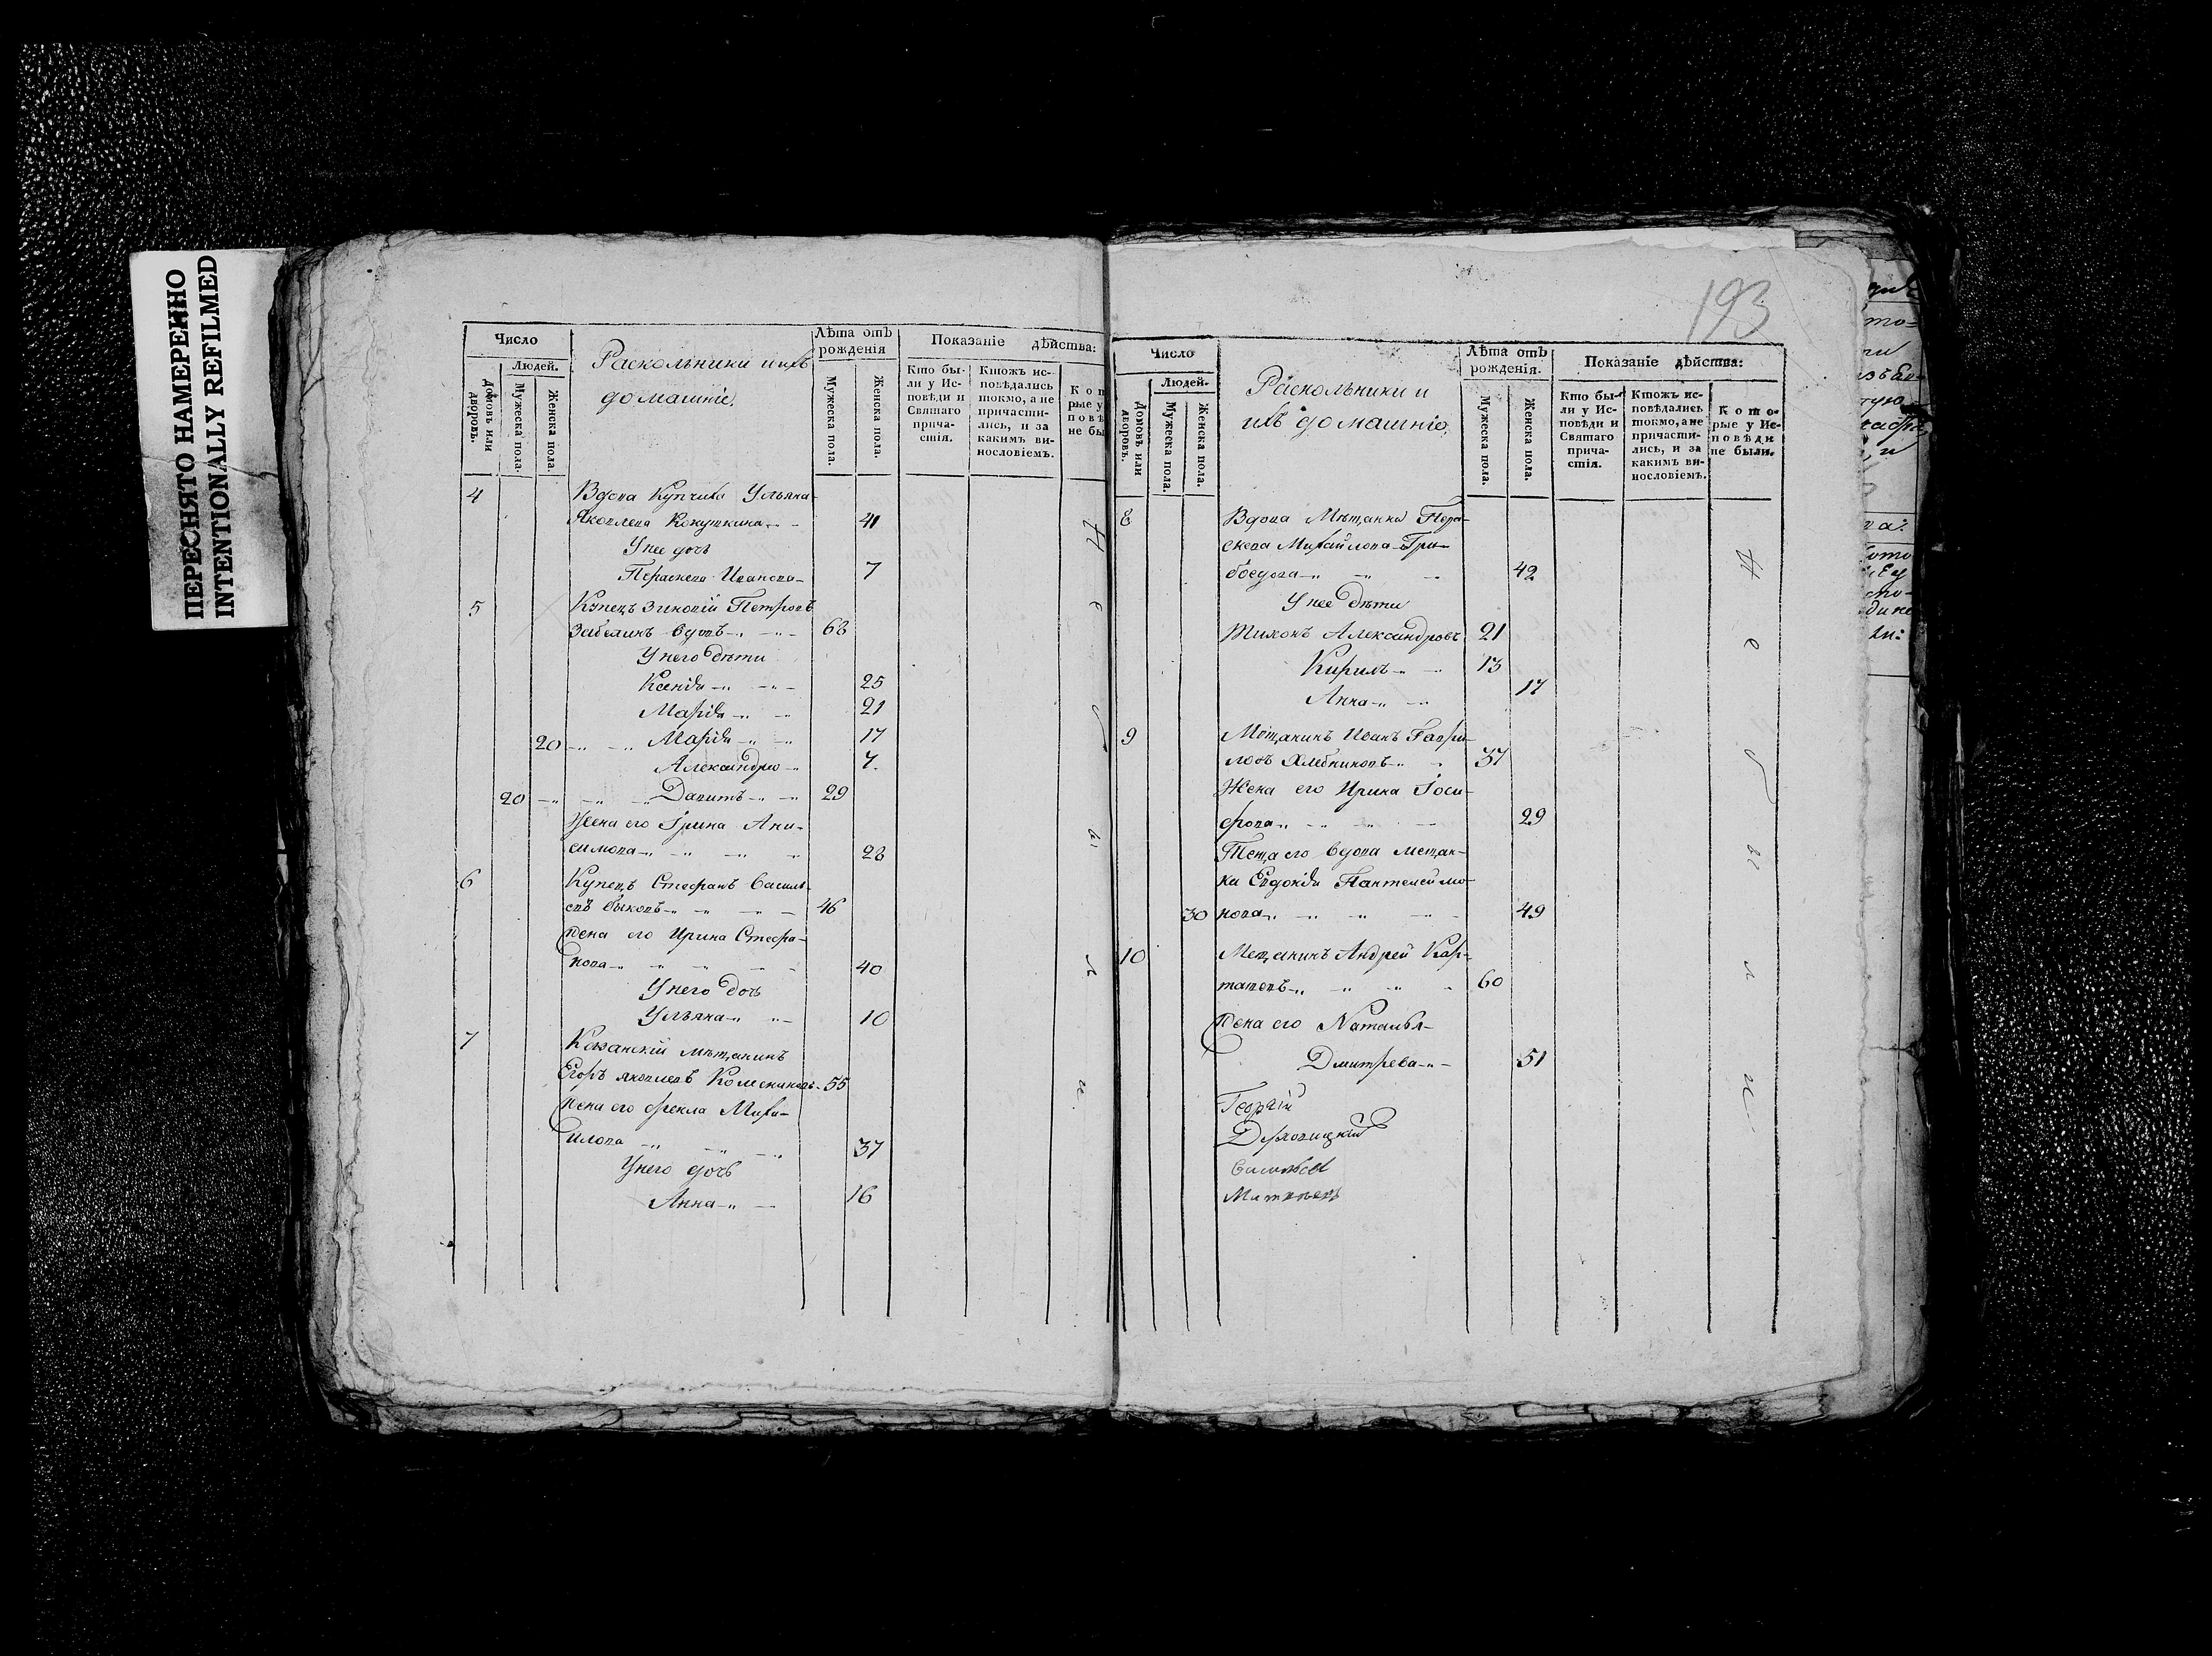 ПЕРЕСНЯТО НАМЕРЕННО
INTENTIONALLY REFILMED
Число
Людей.
Домовъ или дворовъ.
Мужеска пола.
Женска пола.
Раскольники и ихъ
домашніе.
Лѣта отъ
рожденія
Мужеска пола.
Женска пола.
Показаніе дѣйства:
Кто бы-
ли у Ис-
повѣди и
Святаго
прича-
стія.
Ктожъ ис-
повѣдались
токмо, а не
причасти-
лись, и за
какимъ ви-
нословіемъ.
Кот
рые у
повѣ
не бы
4 Вдова Купчиха Ульяна
Яковлева Кокушкина 41
У нее дочь
Параскева Иванова 7
5 Купецъ Зиновій Петровъ
Забелинъ вдовъ 68
У него дѣти
Ксенія 25
Марія 21
20 Марія 17
Александра 7
20 Давитъ 29
Жена его Ірина Ани-
симова 28
6 Купецъ Стефанъ Василь-
евъ Быковъ 46
Жена его Ирина Стефа-
нова 40
У него дочь
Ульяна 10
7 Казанскій мѣщанинъ
Егоръ Яковлевъ 55
Жена его Фекла Миха-
илова 37
У него дочь
Анна 16
Не были.
193
Число
Людей.
Домовъ или дворовъ.
Мужеска пола.
Женска пола.
Раскольники и
ихъ домашніе.
Лѣта отъ
рожденія.
Мужеска пола.
Женска пола.
Показаніе дѣйства:
Кто бы-
ли у Ис-
повѣди и
Святаго
прича-
стія.
Ктожъ ис-
повѣдались
токмо, а не
причасти-
лись, и за
какимъ ви-
нословіемъ.
Кото-
рые у Ис-
повѣди
не были.
8 Вдова Мѣщанка Пара-
скева Михайлова Гри-
боедова 42
У нее дѣти
Тихонъ Александровъ 21
Кирилъ 13
Анна 17
9 Мѣщанинъ Иванъ Гаври-
ловъ Хлебниковъ 37
Жена его Ирина Іоси-
фова 29
Теща его вдова мещан-
ка Евдокія Пантелеймо-
30 нова 49
10 Мещанинъ Андрей Кар-
таповъ 60
Жена его Наталья
Дмитрева 51
Георгій
Не были